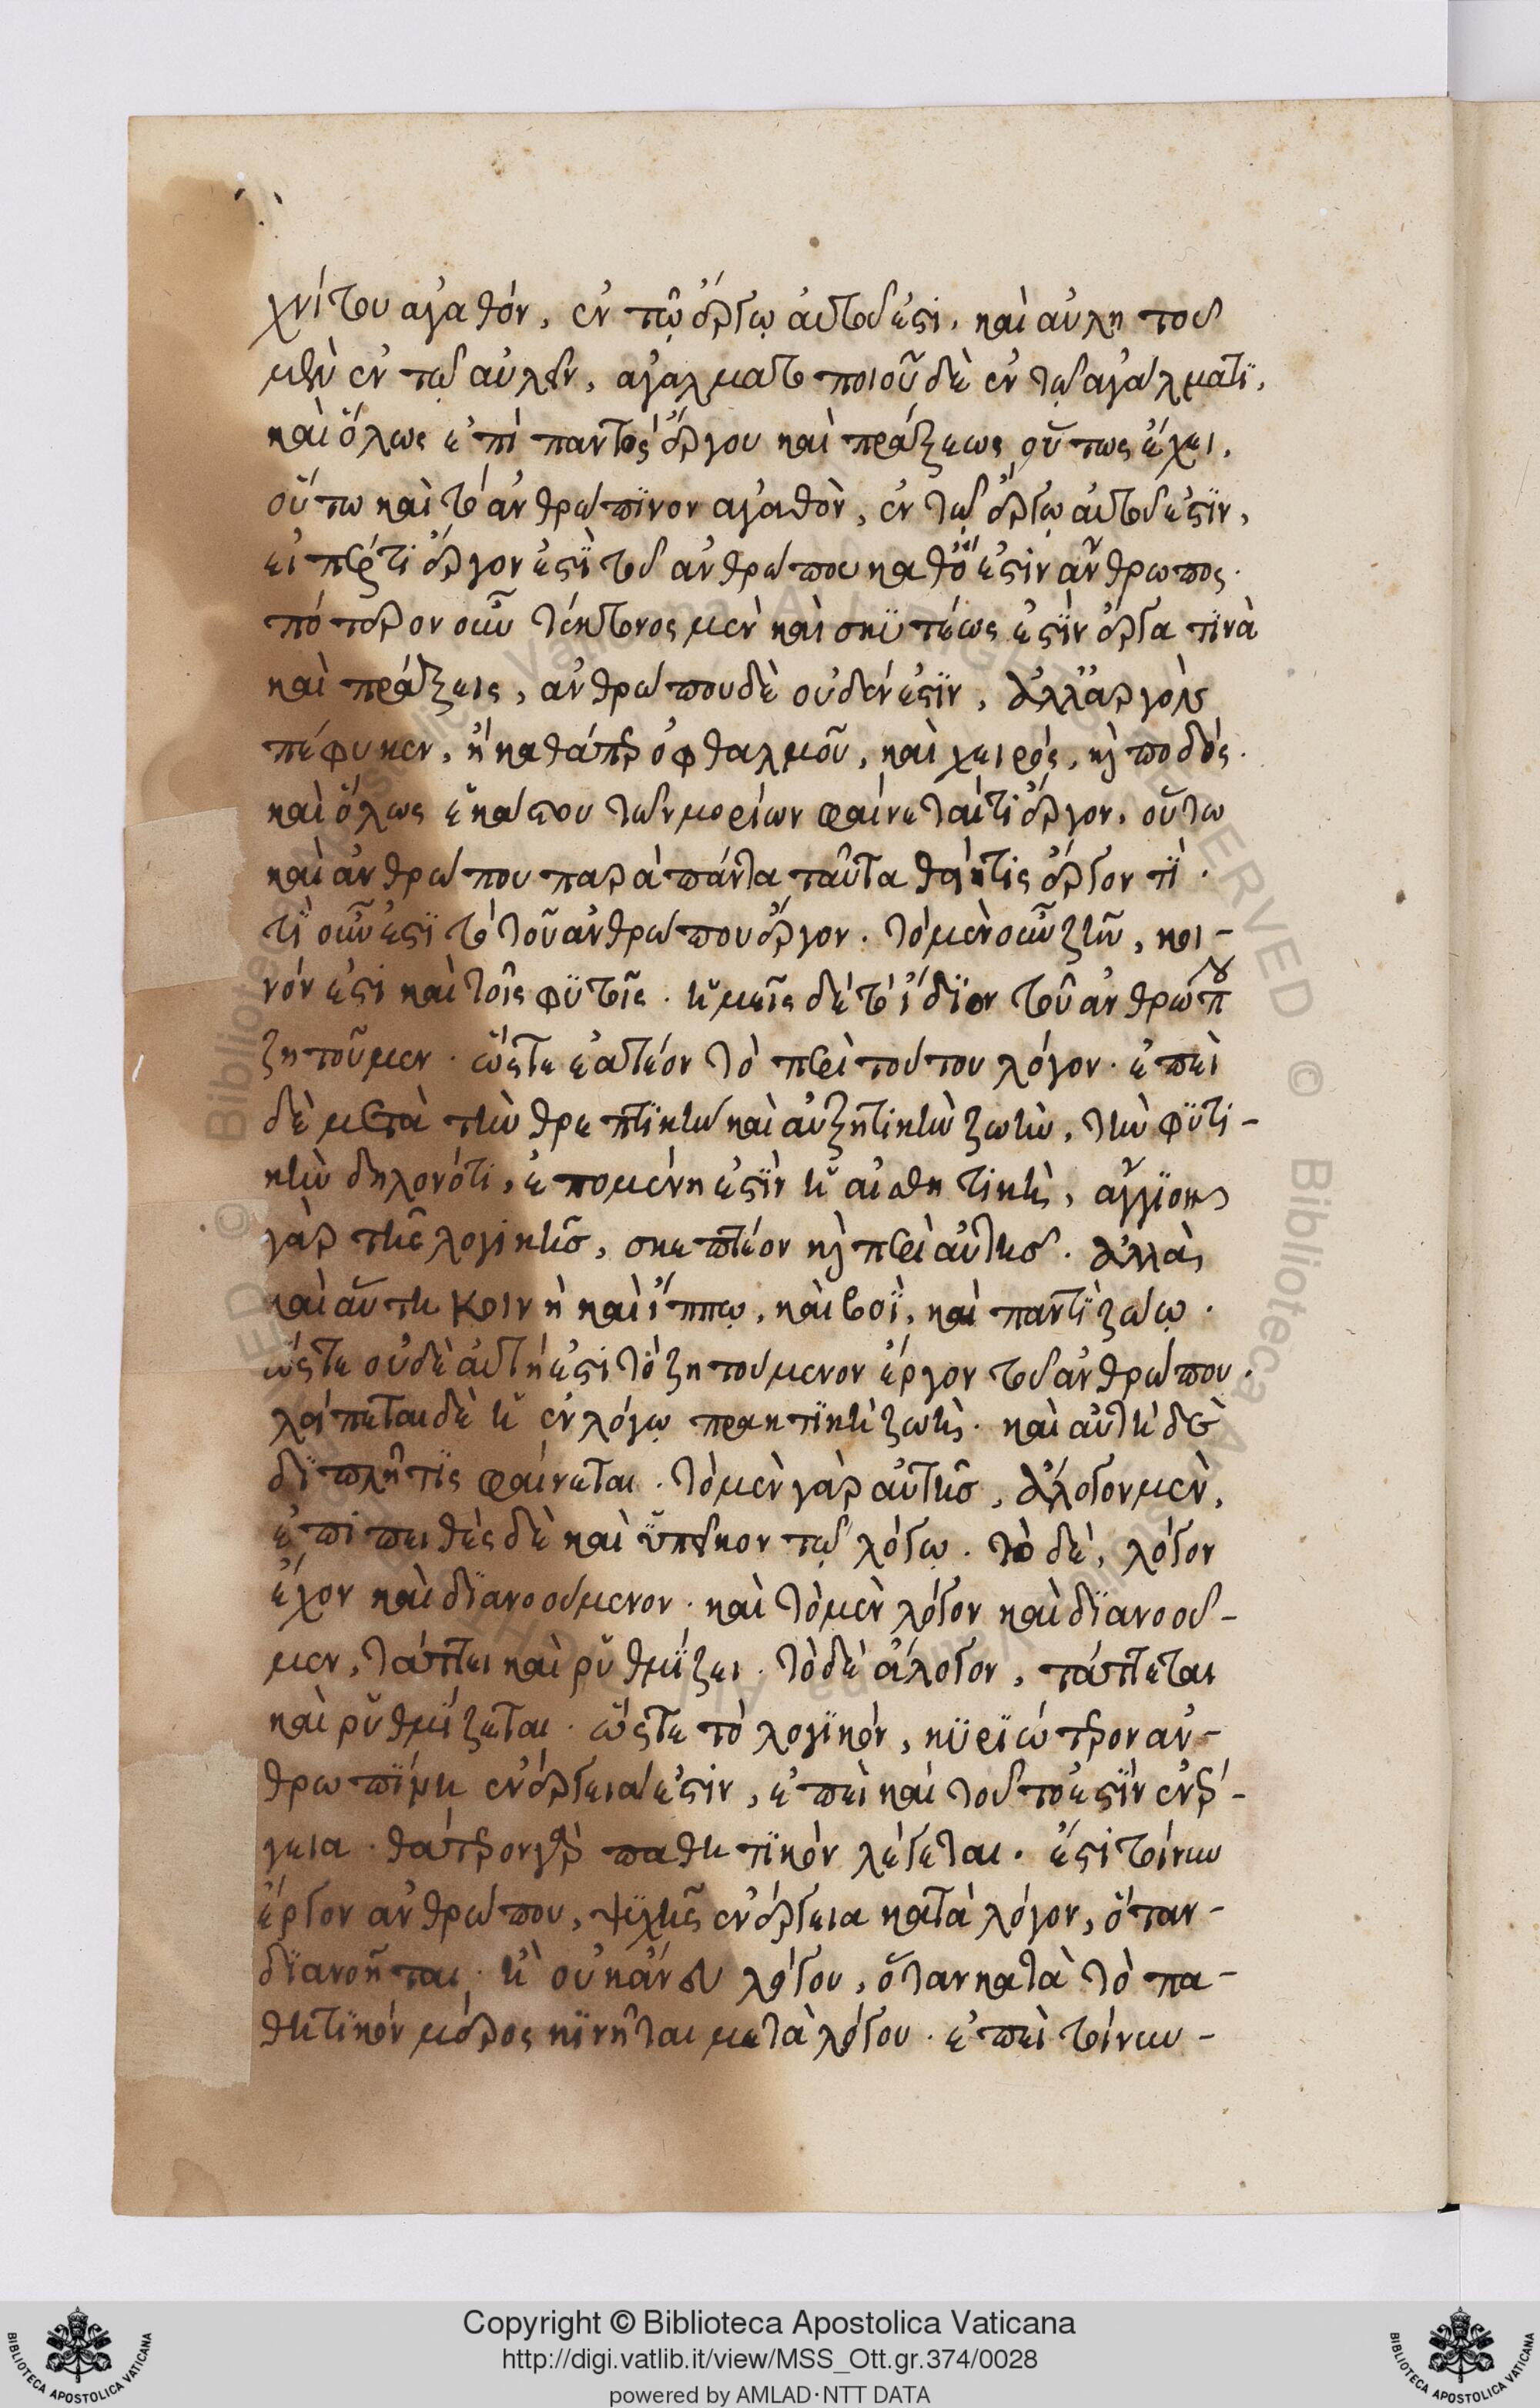 χνίτου ἀγαθόν, ἐν τῷ ἔργῳ αὐτοῦ ἐστι, καὶ αὐλητοῦ
μὲν ἐν τῷ αὐλεῖν, ἀγαλματοποιοῦ δὲ ἐν τῷ ἀγάλματι,
καὶ ὅλως ἐπὶ παντὸς ἔργου καὶ πράξεως οὕτως ἔχει,
οὕτω καὶ τὸ ἀνθρώπινον ἀγαθὸν, ἐν τῷ ἔργῳ αὐτοῦ ἐστιν,
εἴπερ τι ἔργον ἐστὶ τοῦ ἀνθρώπου καθό ἐστιν ἄνθρωπος.
πότερον οὖν τέκτονος μὲν καὶ σκυτέως ἐστὶν ἔργα τινὰ
καὶ πράξεις, ἀνθρώπου δὲ οὐδέν ἐστιν, ἀλλ' ἀργὸς
πέφυκεν, ἢ καθάπερ ὀφθαλμοῦ, καὶ χειρός, καὶ ποδός.
καὶ ὅλως ἑκάστου τῶν μορίων φαίνεταί τι ἔργον, οὕτω
καὶ ἀνθρώπου παρὰ πάντα ταῦτα θείη τις ἔργον τί.
τί οὖν ἐστι τὸ τοῦ ἀνθρώπου ἔργον. τὸ μὲν οὖν ζῆν, κοι-
νόν ἐστι καὶ τοῖς φυτοῖς. ἡμεῖς δὲ τὸ ἴδιον τοῦ ἀνθρώπου
ζητοῦμεν. ὥστε ἐατέον τὸ περὶ τούτου λόγον. ἐπεὶ
δὲ μετὰ τὴν θρεπτικὴν καὶ αὐξητικὴν ζωὴν, τὴν φυτι-
κὴν δηλονότι, ἑπομένη ἐστὶν ἡ αἰσθητικὴ, ἄγγιον
γὰρ τῆς λογικῆς, σκεπτέον καὶ περὶ αὐτῆς. ἀλλὰ
καὶ αὕτη κοινὴ καὶ ἵππῳ, καὶ βοῒ, καὶ παντὶ ζώῳ.
ὥστε οὐδὲ αὐτή ἐστι τὸ ζητούμενον ἔργον τοῦ ἀνθρώπου.
λείπεται δὲ ἡ ἐν λόγῳ πρακτικὴ ζωὴ. καὶ αὐτὴ δὲ
διπλῆ τις φαίνεται. τὸ μὲν γὰρ αὐτῆς, ἄλογον μὲν,
ἐπιπειθὲς δὲ καὶ ὑπήκοον τῷ λόγῳ. τὸ δὲ, λόγον
ἔχον καὶ διανοούμενον. καὶ τὸ μὲν λόγον καὶ διανοού-
μεν, τάττει καὶ ῥυθμίζει. τὸ δὲ ἄλογον, τάττεται
καὶ ῥυθμίζεται. ὥστε τὸ λογικόν, κυριώτερον ἀν-
θρωπίνη ἐνέργειά ἐστιν, ἐπεὶ καὶ τοῦτό ἐστιν ἐνέρ-
γεια. θάτερον γὰρ παθητικόν λέγεται. ἔστι τοίνυν
ἔργον ἀνθρώπου, ψυχῆς ἐνέργεια κατὰ λόγον, ὅταν-
διανοῆται, ἢ οὐκ ἄνευ λόγου, ὅταν κατὰ τὸ πα-
θητικόν μέρος κινῆται μετὰ λόγου. ἐπεὶ τοίνυν-
Copyright © Biblioteca Apostolica Vaticana
http://digi.vatlib.it/view/MSS_Ott.gr.374/0028
powered by AMLAD·NTT DATA